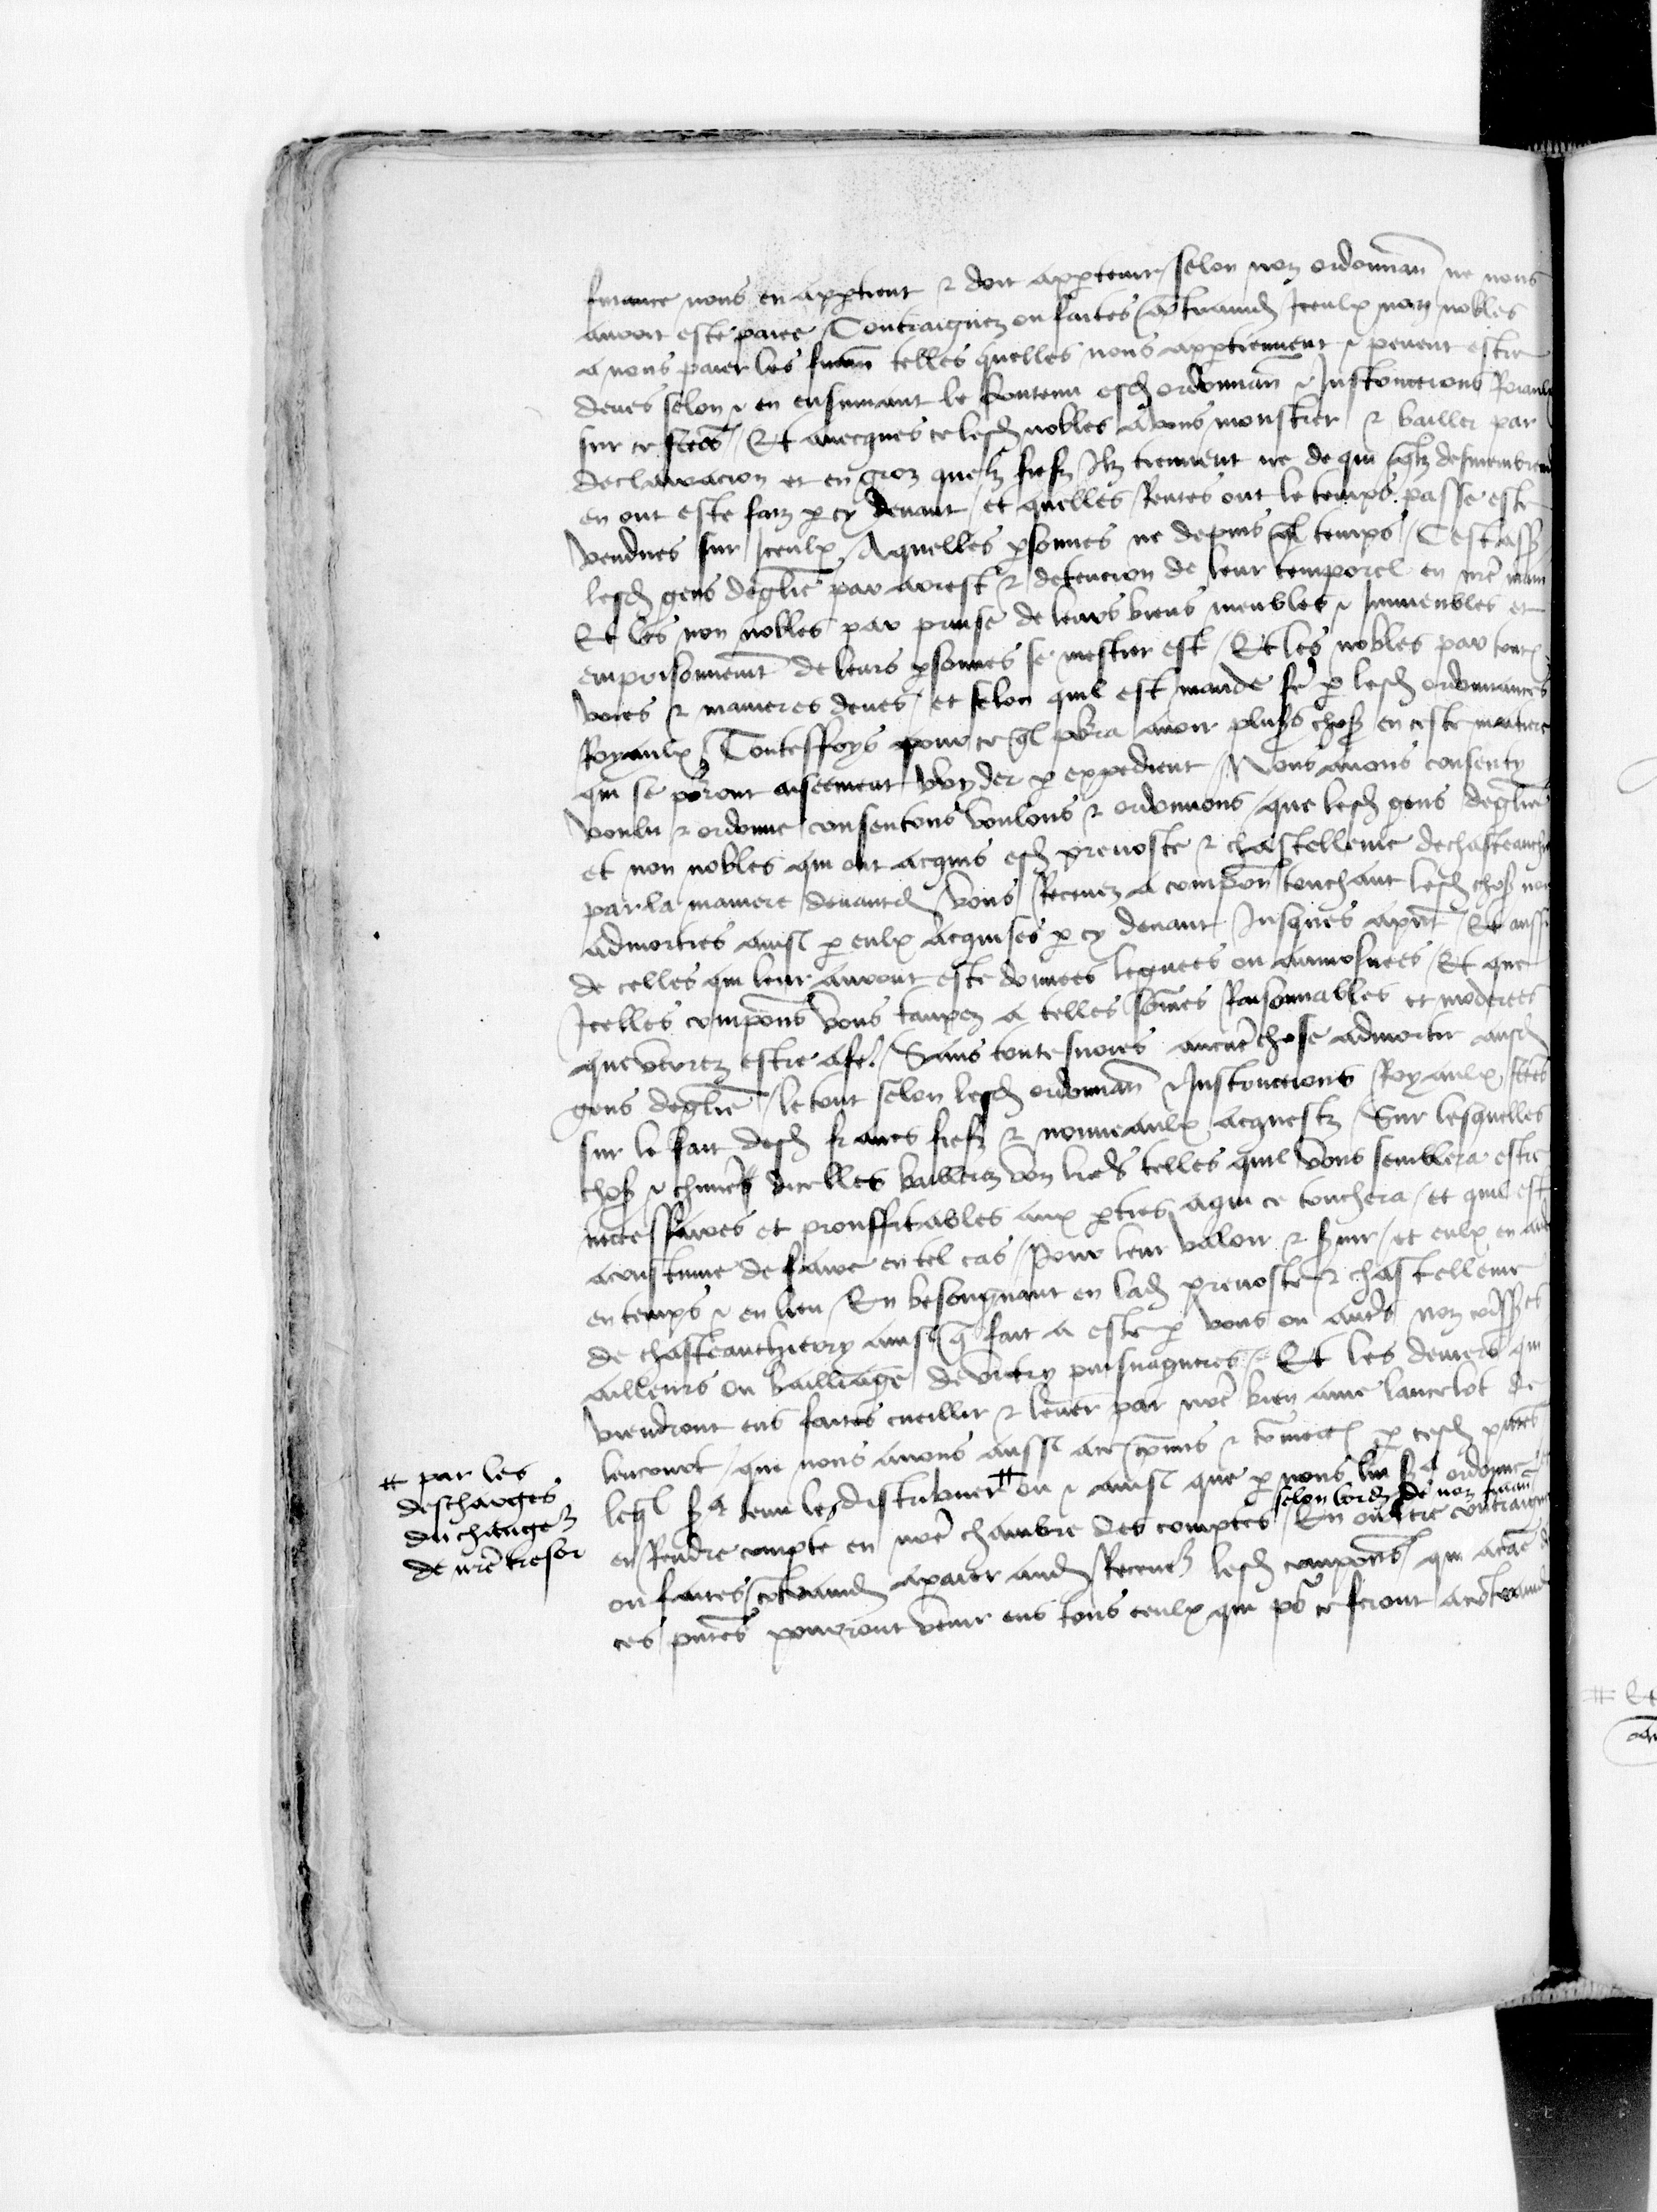 finance nous en appartient et doit appartenir selon noz ordonnan ne nous
avoir este paiee Contraignez ou faites contraind iceulx non nobles
a nous paier les finan telles quelles nous appartiennent et pevent estre
deues selon et en ensuivant le contenu esd ordonnan et Instructions Roiaulx
sur ce fctes Et avecques ce lesd nobles a vous monstrer et bailler par
declaracion et en groz quelz fiefz ilz tiennent ne de qui qlz desmembremens
en ont este faiz p cy devant et quelles Rentes ont le temps passe este
vendues sur iceulx A quelles psonnes ne depuis ql temps Cestass
lesd gens deglie par arrest et detencion de leur temporel en nre main
Et les non nobles par prinse de leurs biens meubles et Immeubles et
emprisonnemt de leurs psonnes se mestier est Et les nobles par toutes
voies et manieres deues et selon quil est mande fe p lesd ordonnances
Royaulx Touteffoys pour ce ql porra avoir plus choses en ceste matiere
qui se porront aiseement vuyder p expedient Nous avons consenty
voulu et ordonne consentons voulons et ordonnons que lesd gens deglie
et non nobles qui ont acquis esd prevoste et chastellenie de chasteauthierry
par la maniere devantd vous Recevez a compon touchant lesd choses non
admorties ainsi p eulx acquises p cy devant Jusques apnt Et aussi
de celles qui leur auront este donnees leguees ou aumosnees Et que
Icelles compons vous tauxez a telles sommes Raisonnables et moderees
que verrez estre afe Sans toutesvoies aucune chose admortir ausd
gens deglie le tout selon lesd ordonnan et Instructions Royaulx fctes
sur le fait desd francs fiefz et nouveaulx acquestz Sur lesquelles
choses et chunes dicelles baillerez voz lres telles quil vous semblera estre
necessaires et prouffitables aux pties a qui ce touchera et quil est
acoustume de faire en tel cas pour leur valoir et svir et eulx en aider
en temps et en lieu En besongnant en lad prevoste et chastellenie
de chasteauthierry ainsi q fait a este p vous ou autres noz comss
ailleurs ou bailliage de Vitry puisnagueres Et les deniers qui
viendront ens faites cueillir et lever par nre bien ame lancelot de
lencourt que nous avons aussi ace commis et commectons p cesd pntes
leql sa tenu les distribuer # ou et ainsi que p nous lui sa ordonne et
selon lordre de noz finan
en Rendre compte en nre chambre des comptes En oultre contraignez
ou faites contraind a paier aud Receveur lesd compons qui a cause de
ces pntes pourront venir ens tous ceulx qui po ce feront a contraind
# par les
descharges
du changeur
de nre tresor
# Et